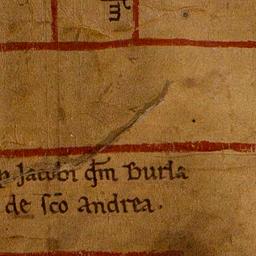 p. Jacobi qm̄ Burla
de sc̄o Andrea.